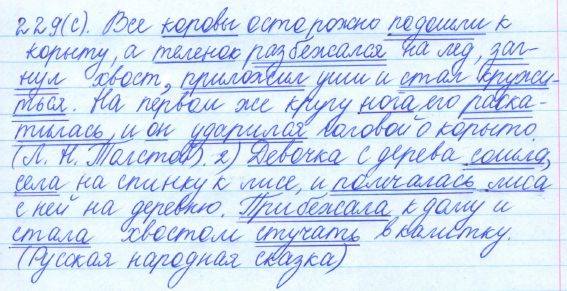 229(с). Все коровы осторожно подошли к
корыту, а теленок разбежался на лед, заг-
нул хвост, приложил уши и стал кружи-
ться. На первом же кругу нога его раска-
тилась, и он ударился головой о корыто.
(Л. Н. Толстой). 2) Девочка с дерева сошла,
села на спинку к лисе, и помчалась лиса
с ней на деревню. Прибежала к дому и
стала хвостом стучать в калитку.
(Русская народная сказка)